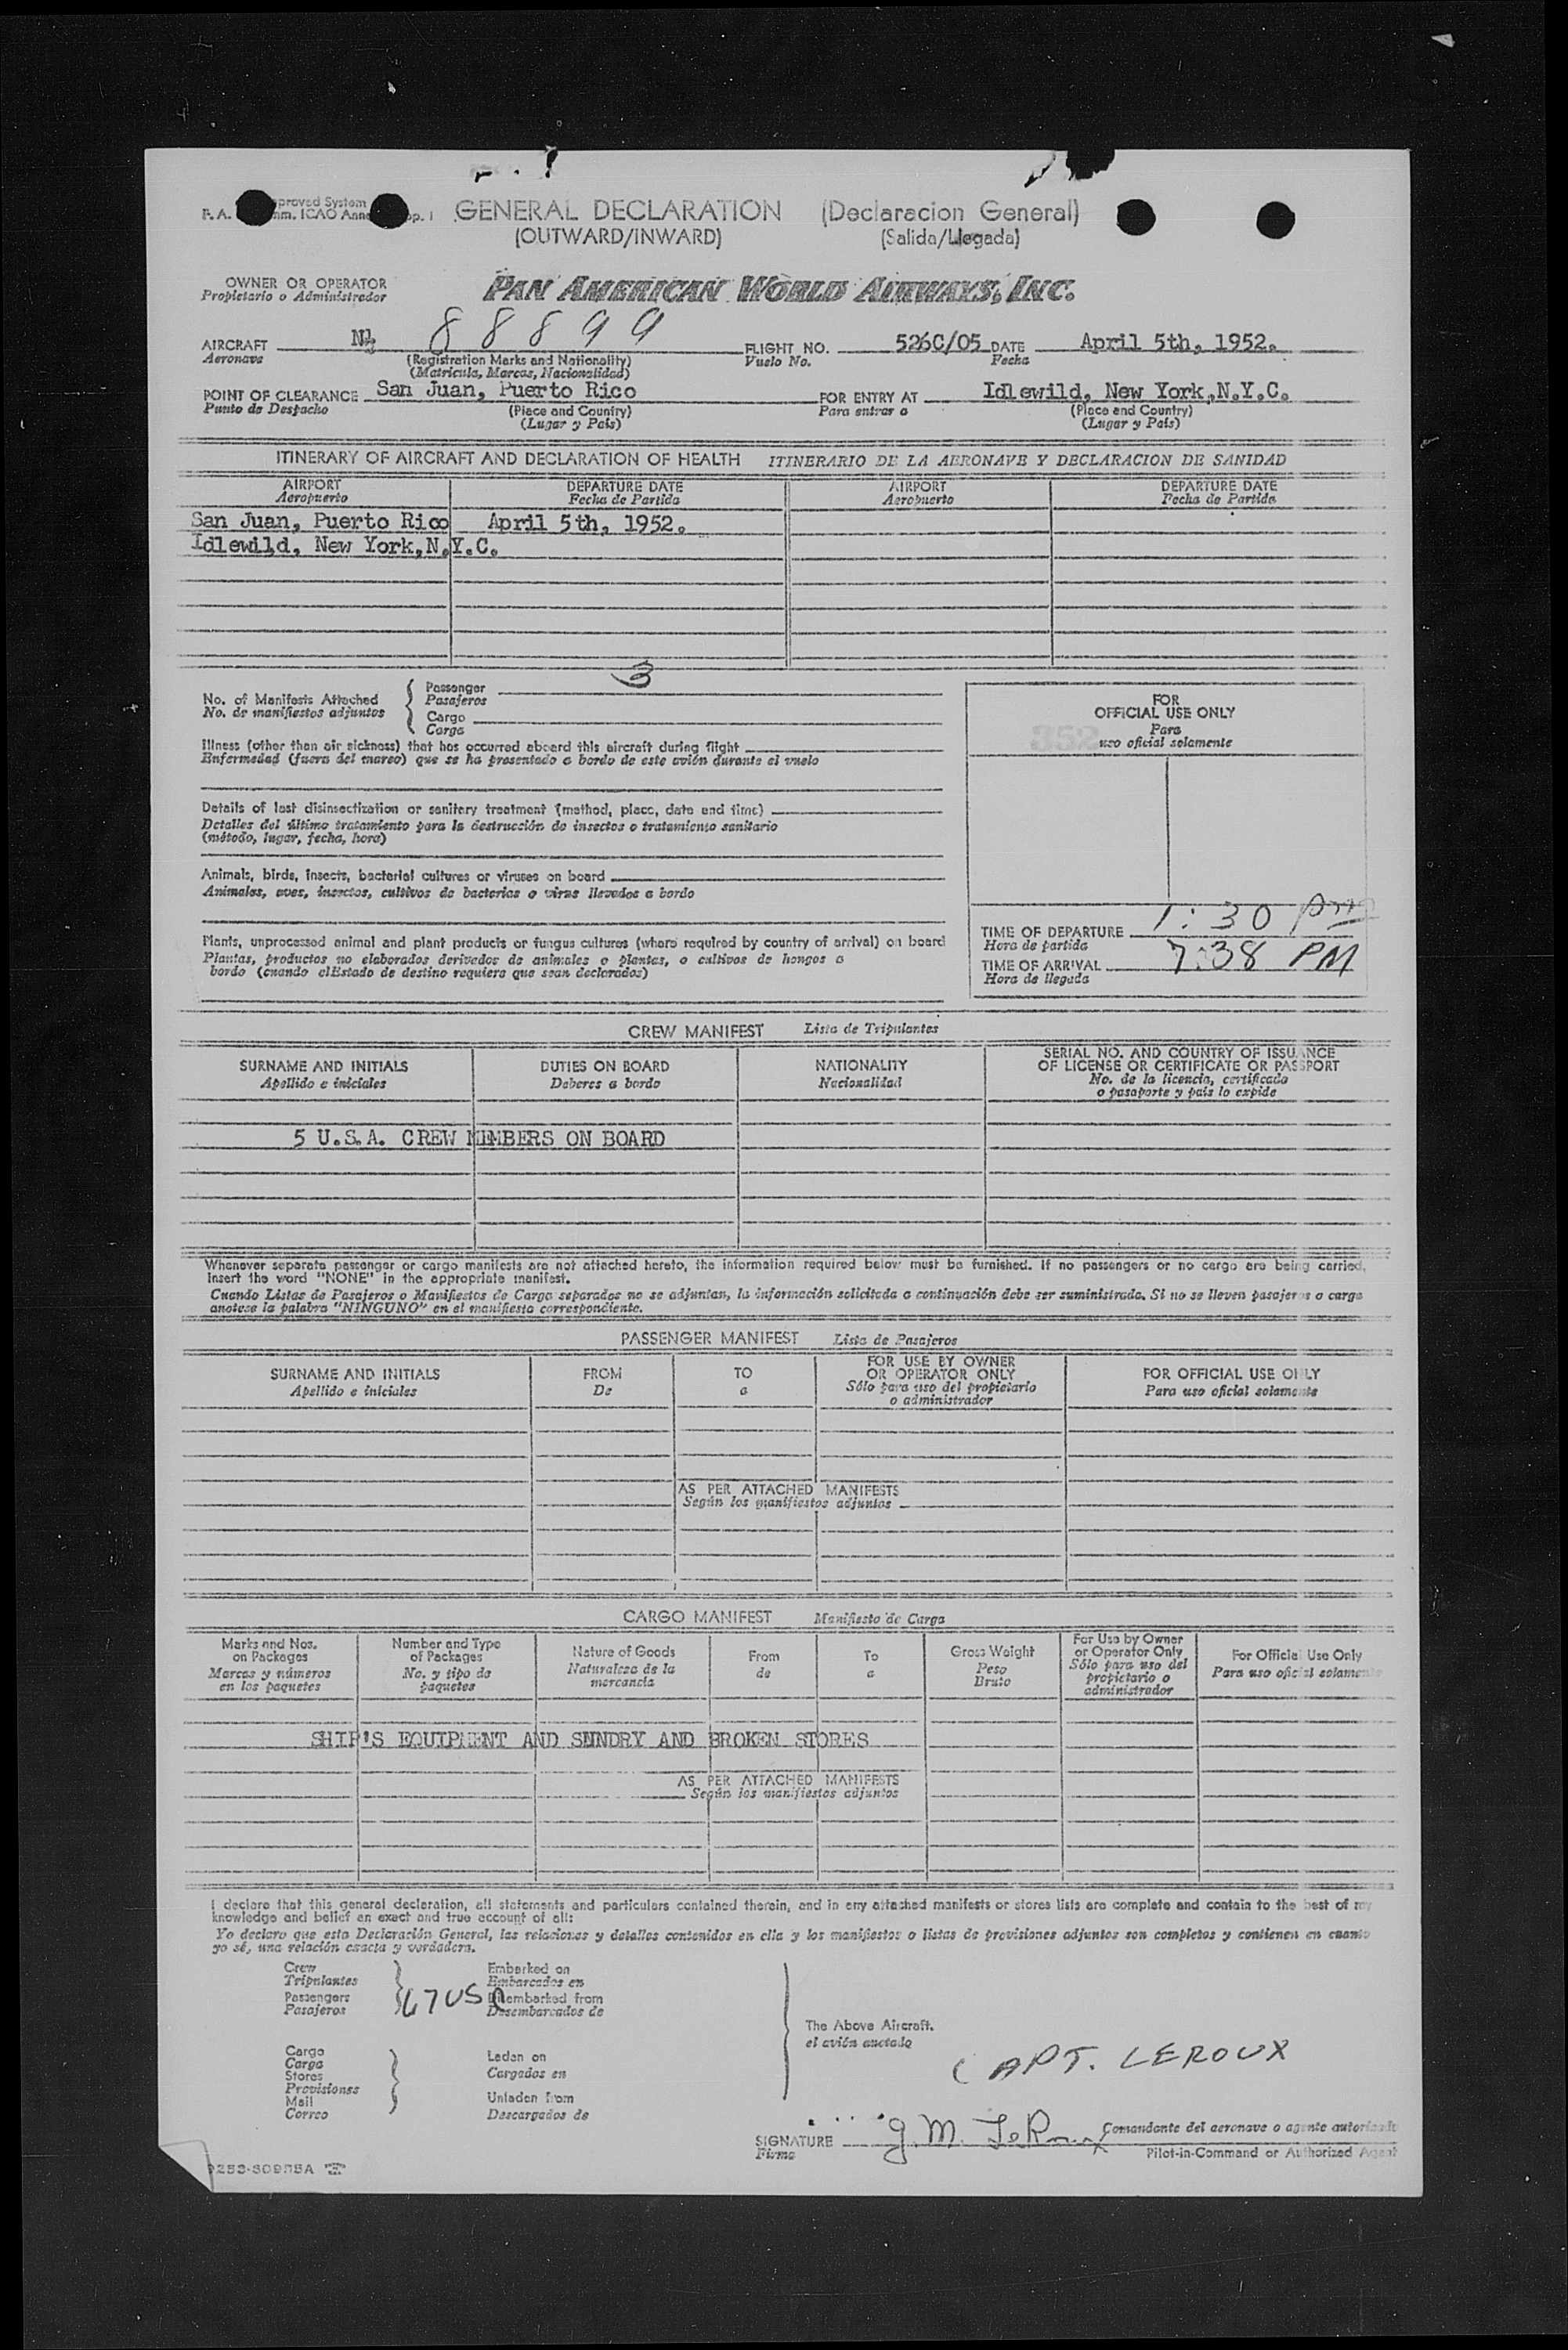 proved System
F. A. nm. ICAO Anne pp. 1
GENERAL DECLARATION (Declaracion General)
(OUTWARD/INWARD) (Salida/Llegada)
OWNER OR OPERATOR
Propietario o Administrador
PAN AMERICAN WORLD AIRWAYS, INC.
AIRCRAFT N 88899 FLIGHT NO. 526C/05 DATE April 5th, 1952.
Aeronave (Registration Marks and Nationality) Vuelo No. Fecha
(Matricula, Marcas, Nacionalidad)
POINT OF CLEARANCE San Juan, Puerto Rico FOR ENTRY AT Idlewild, New York,N.Y.C.
Punto de Despacho (Place and Country) Para entrar a (Place and Country)
(Lugar y País) (Lugar y País)
ITINERARY OF AIRCRAFT AND DECLARATION OF HEALTH ITINERARIO DE LA AERONAVE Y DECLARACION DE SANIDAD
AIRPORT DEPARTURE DATE AIRPORT DEPARTURE DATE
Aeropuerto Fecha de Partida Aeropuerto Fecha de Partida
San Juan, Puerto Rico April 5th, 1952.
Idlewild, New York,N.Y.C.
No. of Manifests Attached
No. de manifiestos adjuntos
Passenger 3
Pasajeros
Cargo
Carga
Illness (other than air sickness) that has occurred aboard this aircraft during flight
Enfermedad (fuera del mareo) que se ha presentado a bordo de este avión durante el vuelo
Details of last disinsectization or sanitary treatment (method, place, date and time)
Detalles del último tratamiento para la destrucción de insectos o tratamiento sanitario
(método, lugar, fecha, hora)
Animals, birds, insects, bacterial cultures or viruses on board
Animales, aves, insectos, cultivos de bacterias o virus llevados a bordo
Plants, unprocessed animal and plant products or fungus cultures (where required by country of arrival) on board
Plantas, productos no elaborados derivados de animales o plantas, o cultivos de hongos a
bordo (cuando elEstado de destino requiera que sean declarados)
FOR
OFFICIAL USE ONLY
Para
uso oficial solamente
352
TIME OF DEPARTURE 1:30 pm
Hora de partida
TIME OF ARRIVAL 7:38 PM
Hora de llegada
CREW MANIFEST Lista de Tripulantes
SURNAME AND INITIALS DUTIES ON BOARD NATIONALITY SERIAL NO. AND COUNTRY OF ISSUANCE
OF LICENSE OR CERTIFICATE OR PASSPORT
Apellido e iniciales Deberes a bordo Nacionalidad No. de la licencia, certificado
o pasaporte y país lo expide
5 U.S.A. CREW MEMBERS ON BOARD
Whenever separate passenger or cargo manifests are not attached hereto, the information required below must be furnished. If no passengers or no cargo are being carried,
insert the word "NONE" in the appropriate manifest.
Cuando Listas de Pasajeros o Manifiestos de Carga separados no se adjuntan, la información solicitada a continuación debe ser suministrada. Si no se lleven pasajeros o carga
anotese la palabra "NINGUNO" en el manifiesto correspondiente.
PASSENGER MANIFEST Lista de Pasajeros
SURNAME AND INITIALS FROM TO FOR USE BY OWNER
OR OPERATOR ONLY FOR OFFICIAL USE ONLY
Apellido e iniciales De a Sólo para uso del propietario
o administrador Para uso oficial solamente
AS PER ATTACHED MANIFESTS
Según los manifiestos adjuntos
CARGO MANIFEST Manifiesto de Carga
Marks and Nos.
on Packages
Marcas y números
en los paquetes
Number and Type
of Packages
No. y tipo de
paquetes
Nature of Goods
Naturaleza de la
mercancía
From
de
To
a
Gross Weight
Peso
Bruto
For Use by Owner
or Operator Only
Sólo para uso del
propietario o
administrador
For Official Use Only
Para uso oficial solamente
SHIP'S EQUIPMENT AND SUNDRY AND BROKEN STORES
AS PER ATTACHED MANIFESTS
Según los manifiestos adjuntos
I declare that this general declaration, all statements and particulars contained therein, and in any attached manifests or stores lists are complete and contain to the best of my
knowledge and belief an exact and true account of all:
Yo declaro que esta Declaración General, las relaciones y detalles contenidos en ella y los manifiestos o listas de provisiones adjuntos son completos y contienen en cuanto
yo sé, una relación exacta y verdadera.
Crew
Tripulantes
Passengers
Pasajeros
67 USC
Embarked on
Embarcados en
Disembarked from
Desembarcados de
Cargo
Carga
Stores
Provisiones
Mail
Correo
Laden on
Cargados en
Unladen from
Descargados de
The Above Aircraft.
el avión anotado
CAPT. LEROUX
SIGNATURE J.M. LeRoux
Firma
Comandante del aeronave o agente autorizado
Pilot-in-Command or Authorized Agent